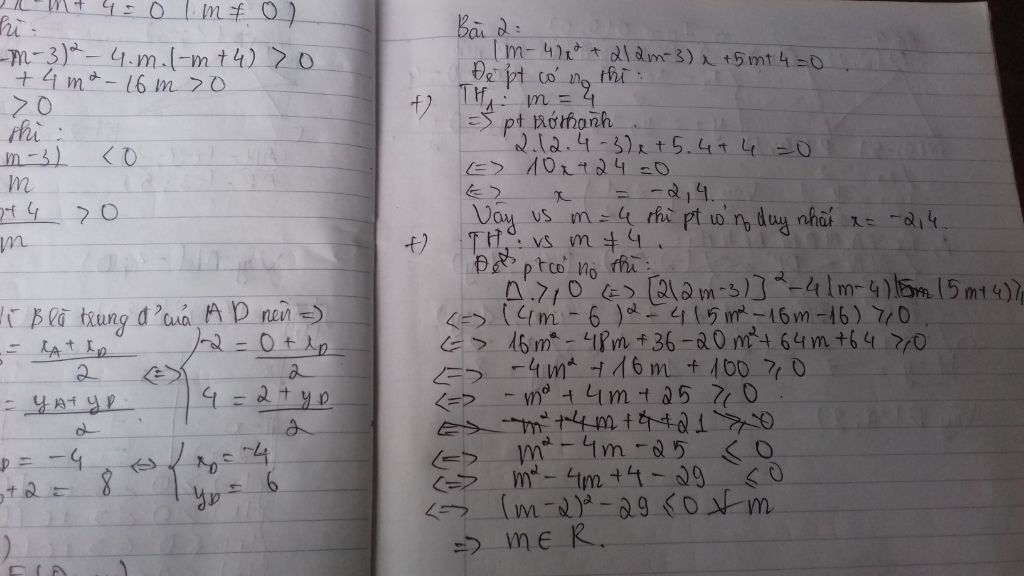 x - m + 4 = 0 (m ≠ 0)
thì:
m-3)² - 4.m.(-m+4) > 0
+ 4m² - 16m > 0
> 0
thì:
m-3) < 0
m
+ 4 > 0
m
B là trung đ' của AD nên =>
= xA + xD / 2 <=> { -2 = 0 + xD / 2
= yA + yD / 2 4 = 2 + yD / 2
= -4 <=> { xD = -4
+2 = 8 yD = 6
Bài 2:
(m-4)x² + 2(2m-3)x + 5m+4 = 0.
Để pt có n0 thì:
+) TH1: m = 4
=> pt trở thành
2.(2.4-3)x + 5.4 + 4 = 0
<=> 10x + 24 = 0
<=> x = -2,4.
Vậy vs m = 4 thì pt có n0 duy nhất x = -2,4.
+) TH2: vs m ≠ 4.
Để pt có n0 thì:
Δ ≥ 0 <=> [2(2m-3)]² - 4(m-4)(5m+4) ≥
<=> (4m - 6)² - 4(5m² - 16m - 16) ≥ 0
<=> 16m² - 48m + 36 - 20m² + 64m + 64 ≥ 0
<=> -4m² + 16m + 100 ≥ 0
<=> -m² + 4m + 25 ≥ 0
<=> -m² + 4m + 4 + 21 ≥ 0
<=> m² - 4m - 25 ≤ 0
<=> m² - 4m + 4 - 29 ≤ 0
<=> (m-2)² - 29 ≤ 0 ∀ m
=> m ∈ R.